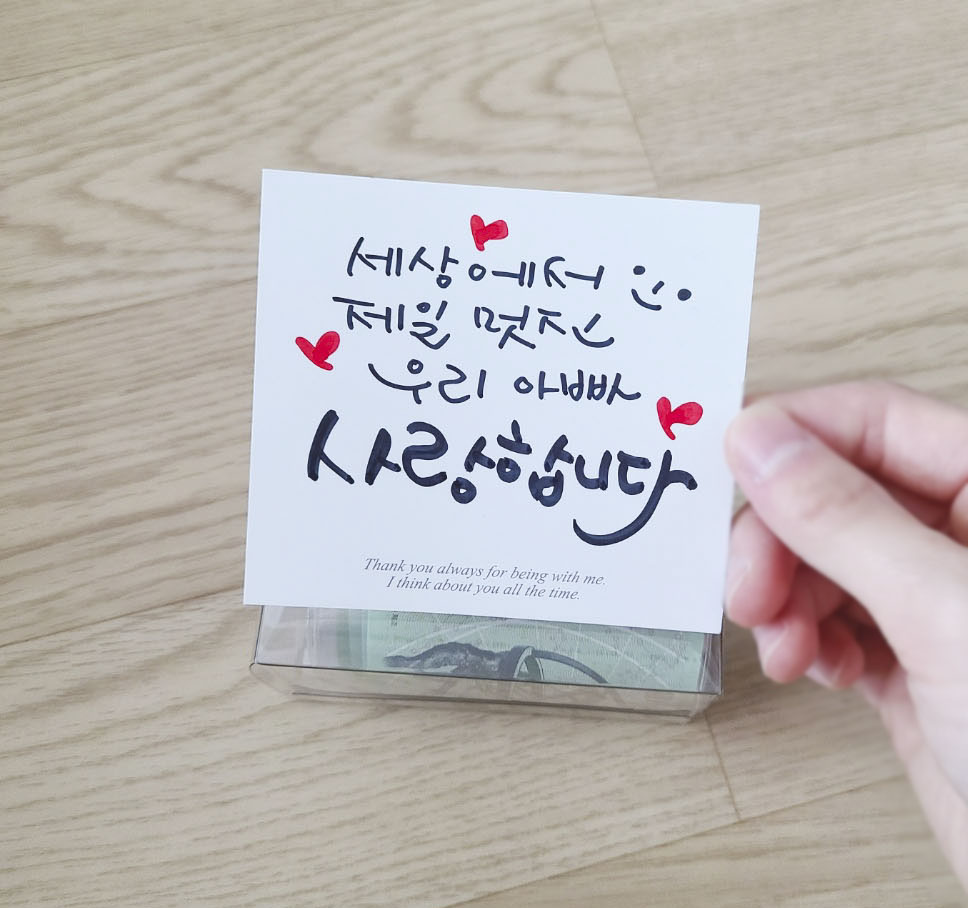 세상에서
제일 멋진
우리 아빠
사랑합니다
Thank you always for being with me.
I think about you all the time.